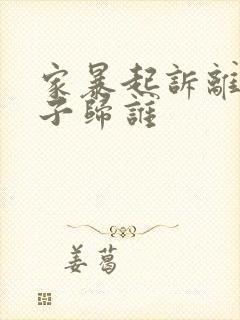 家暴起訴離
子歸誰
姜葛